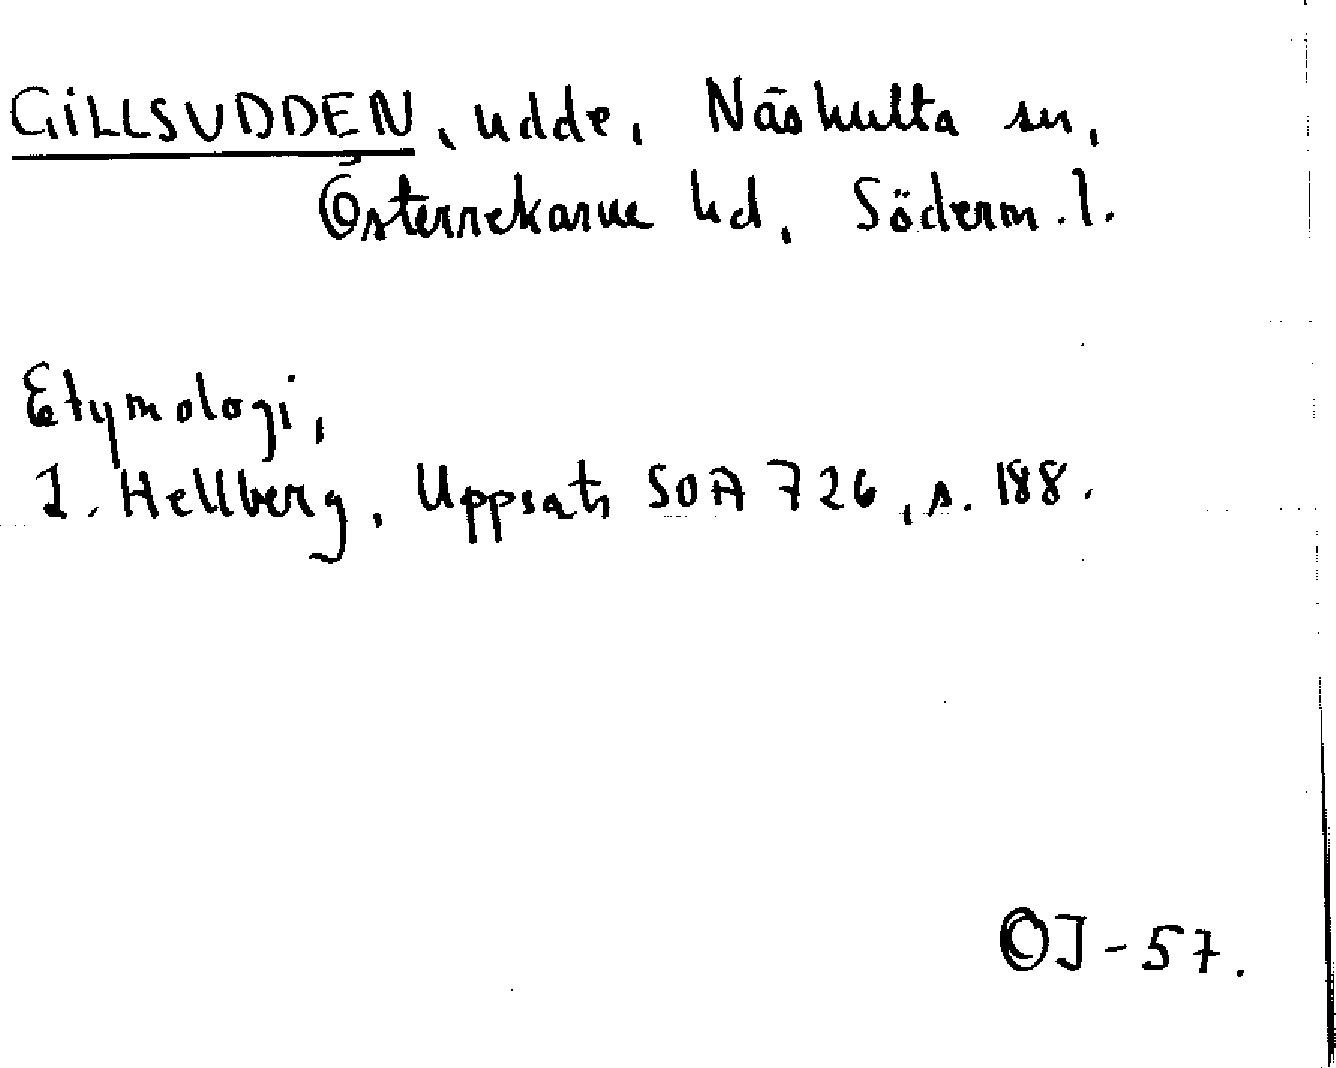 GILLSUDDEN, udde, Näshulta sn,
Österrekarne hd, Söderm.l.
Etymologi,
L. Hellberg, Uppsats SOA 726, s. 188.
OJ-57.